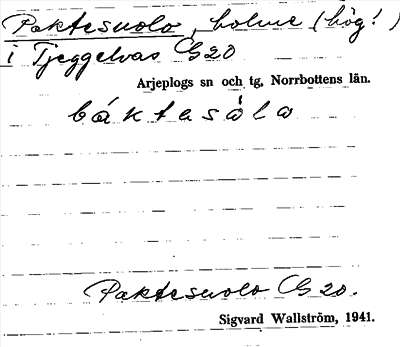 Paktesuolo, holme (hög!)
i Tjeggelvas G20
Arjeplogs sn och tg, Norrbottens län.
báktasåla
Paktesuolo G20.
Sigvard Wallström, 1941.